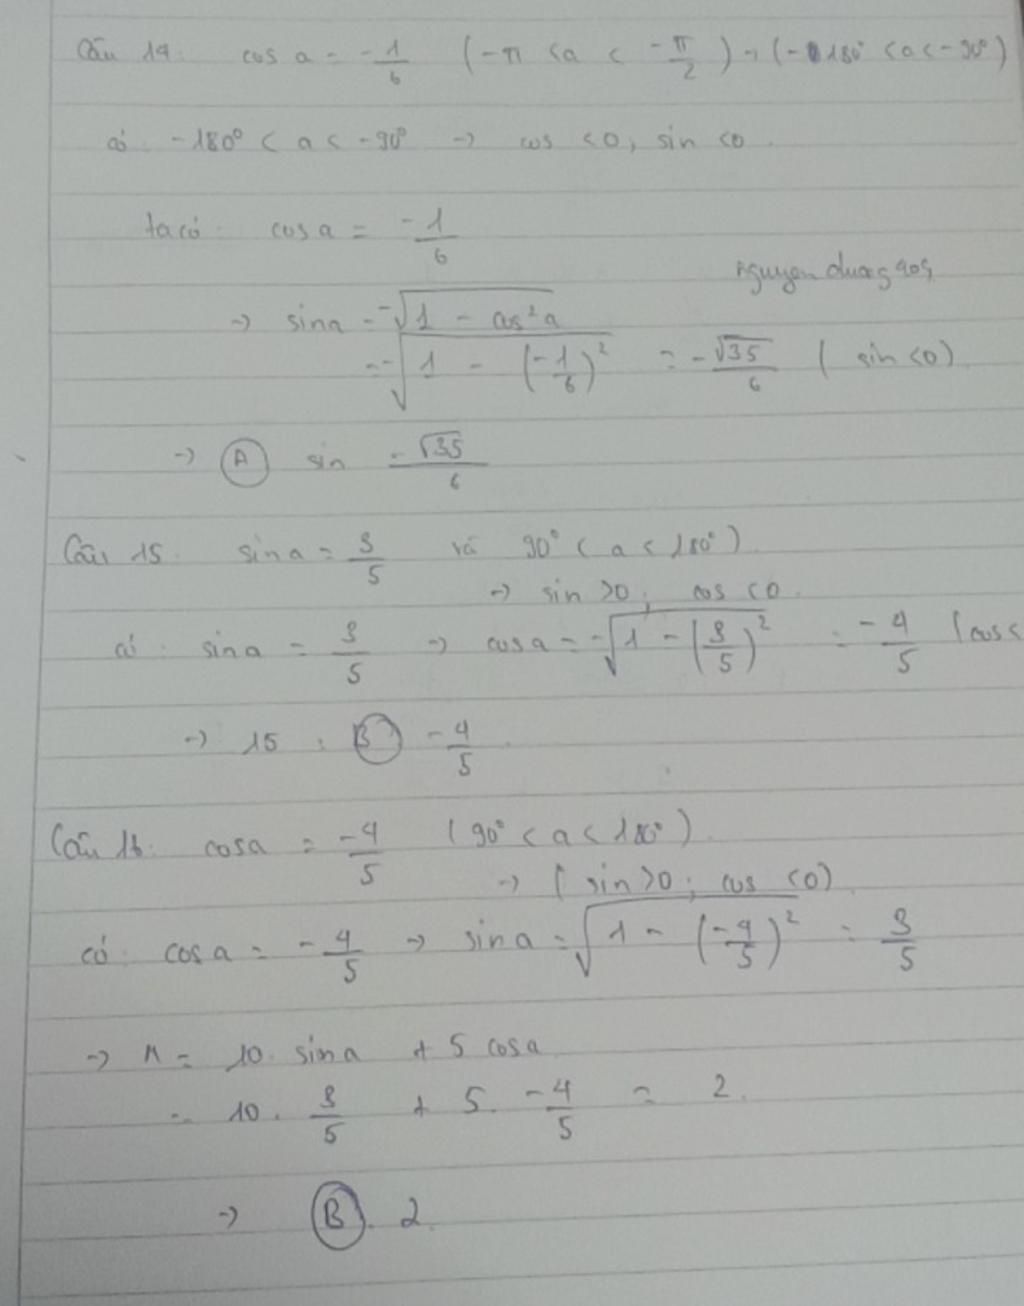 Câu 14: cos a = -1/6 (-π < a < -π/2) → (-180° < a < -90°)
có: -180° < a < -90° → cos < 0, sin < 0.
ta có: cos a = -1/6
nguyen duong 909
→ sin a = -√(1 - cos²a)
= -√(1 - (-1/6)²) = -√35/6 (sin < 0)
→ Ⓐ sin -√35/6
Câu 15: sin a = 3/5 và 90° < a < 180°)
→ sin > 0; cos < 0
có: sin a = 3/5 → cos a = -√(1 - (3/5)²) = -4/5 (cos <
→ 15: Ⓑ -4/5.
Câu 16: cos a = -4/5 (90° < a < 180°)
→ (sin > 0; cos < 0)
có: cos a = -4/5 → sin a = √(1 - (-4/5)²) = 3/5
→ M = 10. sin a + 5 cos a
= 10. 3/5 + 5. -4/5 = 2.
→ Ⓑ. 2.